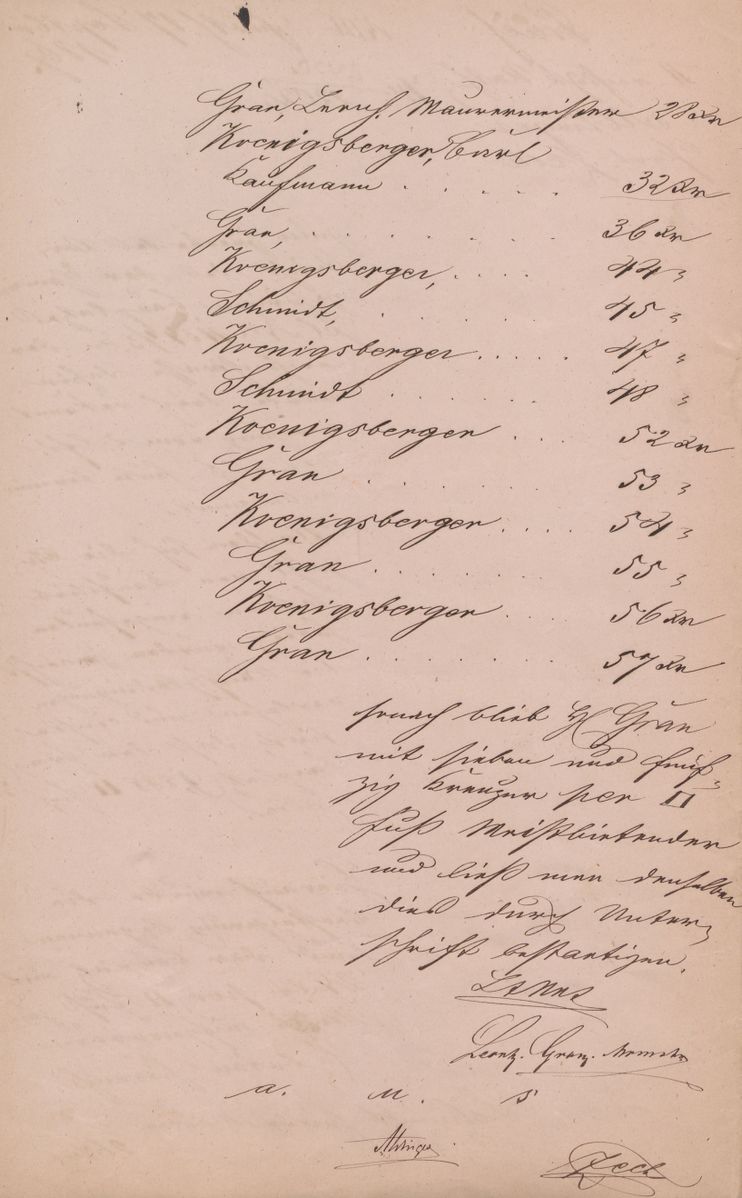 Gran, Leonh. Maurermeister 28 Kr
Koenigsberger, Carl
Kaufmann . . . . . 32 Kr
Gran, . . . . . . . 36 Kr
Koenigsberger, . . . . 44 "
Schmidt, . . . . . . 45 "
Koenigsberger . . . . . 47 "
Schmidt . . . . . . 48 "
Koenigsberger . . . 52 Kr
Gran . . . . . . 53 "
Koenigsberger . . . . 54 "
Gran . . . . . . 55 "
Koenigsberger . . . . 56 Kr
Gran . . . . . . 57 Kr
sonach blieb H Gran
mit sieben und fünf-
zig Kreuzer per □
Fuß Meistbietender
und ließ man denselben
dies durch Unter-
schrift bestaetigen.
Leonh. Gran.
a. u. s